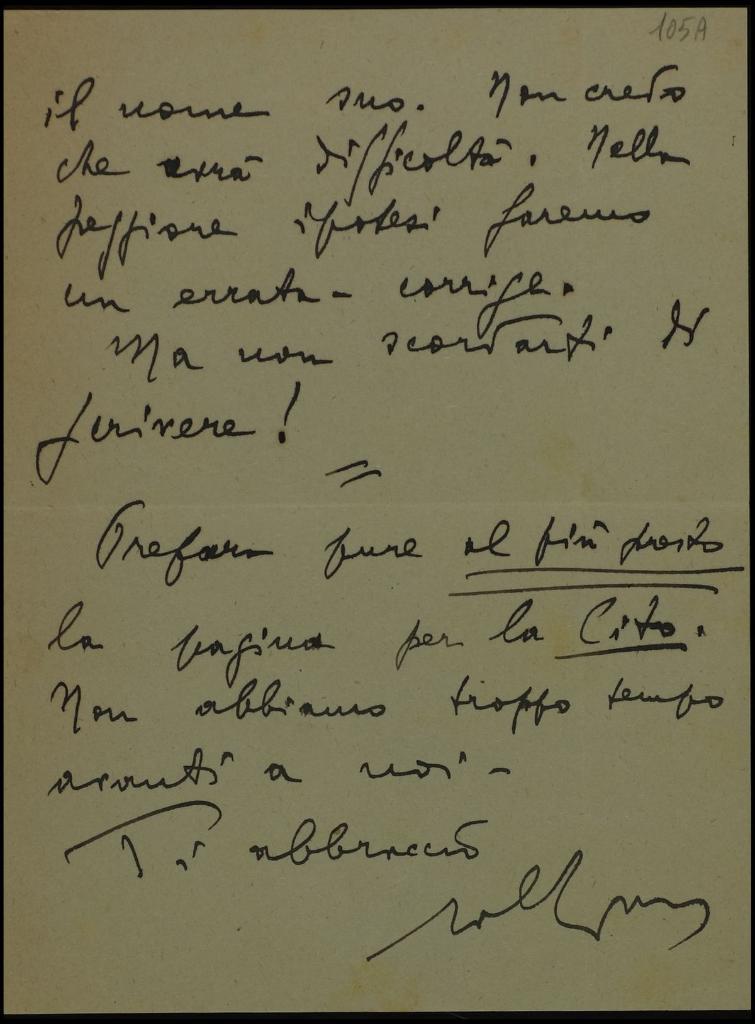 105A
il nome suo. Non credo
che avrà difficoltà. Nella
peggiore ipotesi faremo
un errata-corrige.
Ma non scordarti di
scrivere!
=
Prepara pure al più presto
la pagina per la Cito.
Non abbiamo troppo tempo
avanti a noi -
Ti abbraccio